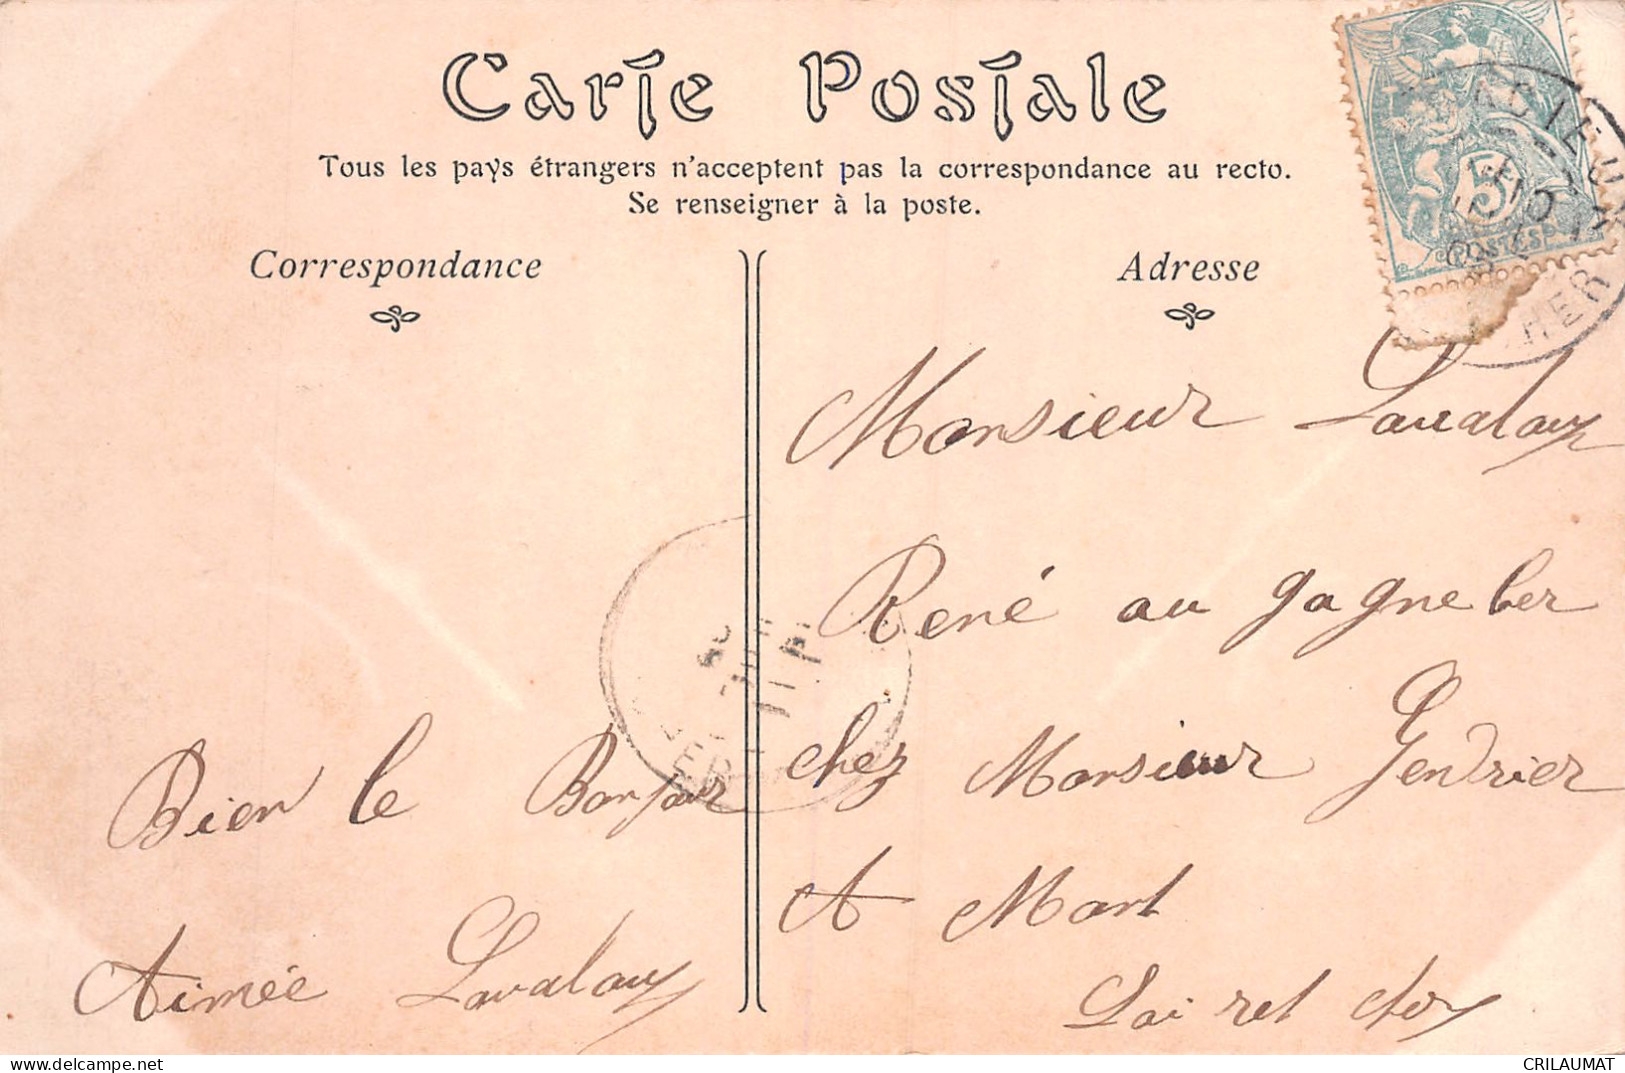 Carte Postale
Tous les pays étrangers n'acceptent pas la correspondance au recto.
Se renseigner à la poste.
Correspondance
Adresse
5
POSTES
HER
Bien le Bonjour
Aimée Lavalaux
Monsieur Lavalaux
René au gagneber
chez Monsieur Gendrier
A Mont
Loi ret cher
CRILAUMAT